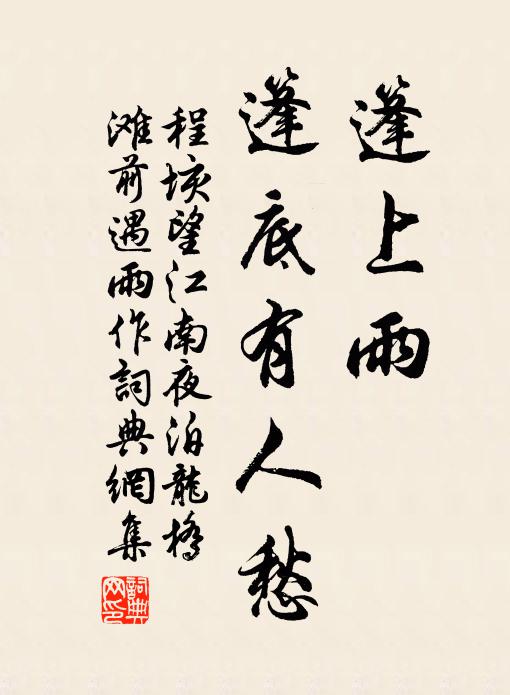 篷上雨
篷底有人愁
程垓望江南夜泊龍橋
灘前遇雨作詞典網集
詞典網印